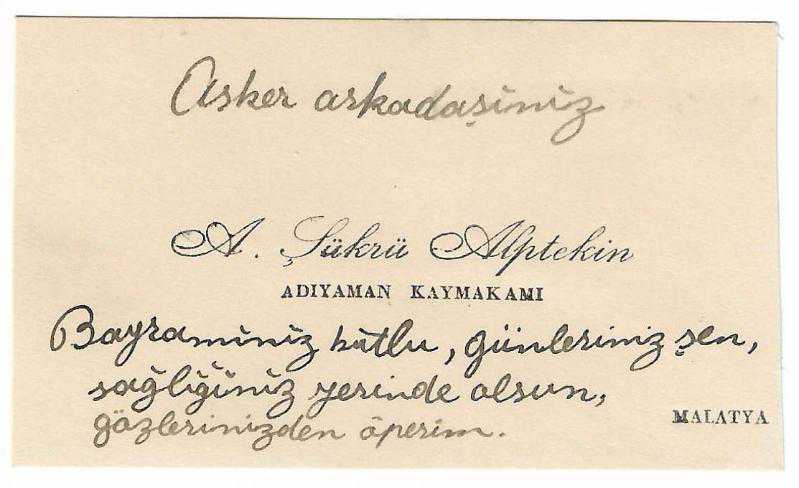 Asker arkadaşiniz
A. Şükrü Alptekin
ADIYAMAN KAYMAKAMI
Bayraminiz kutlu, günleriniz şen,
sağliğiniz yerinde olsun,
gözlerinizden öperim.
MALATYA